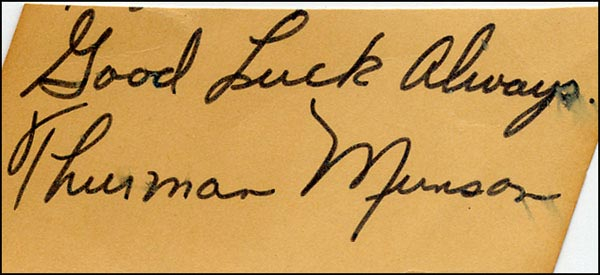 Good Luck Always.
Thurman Munson